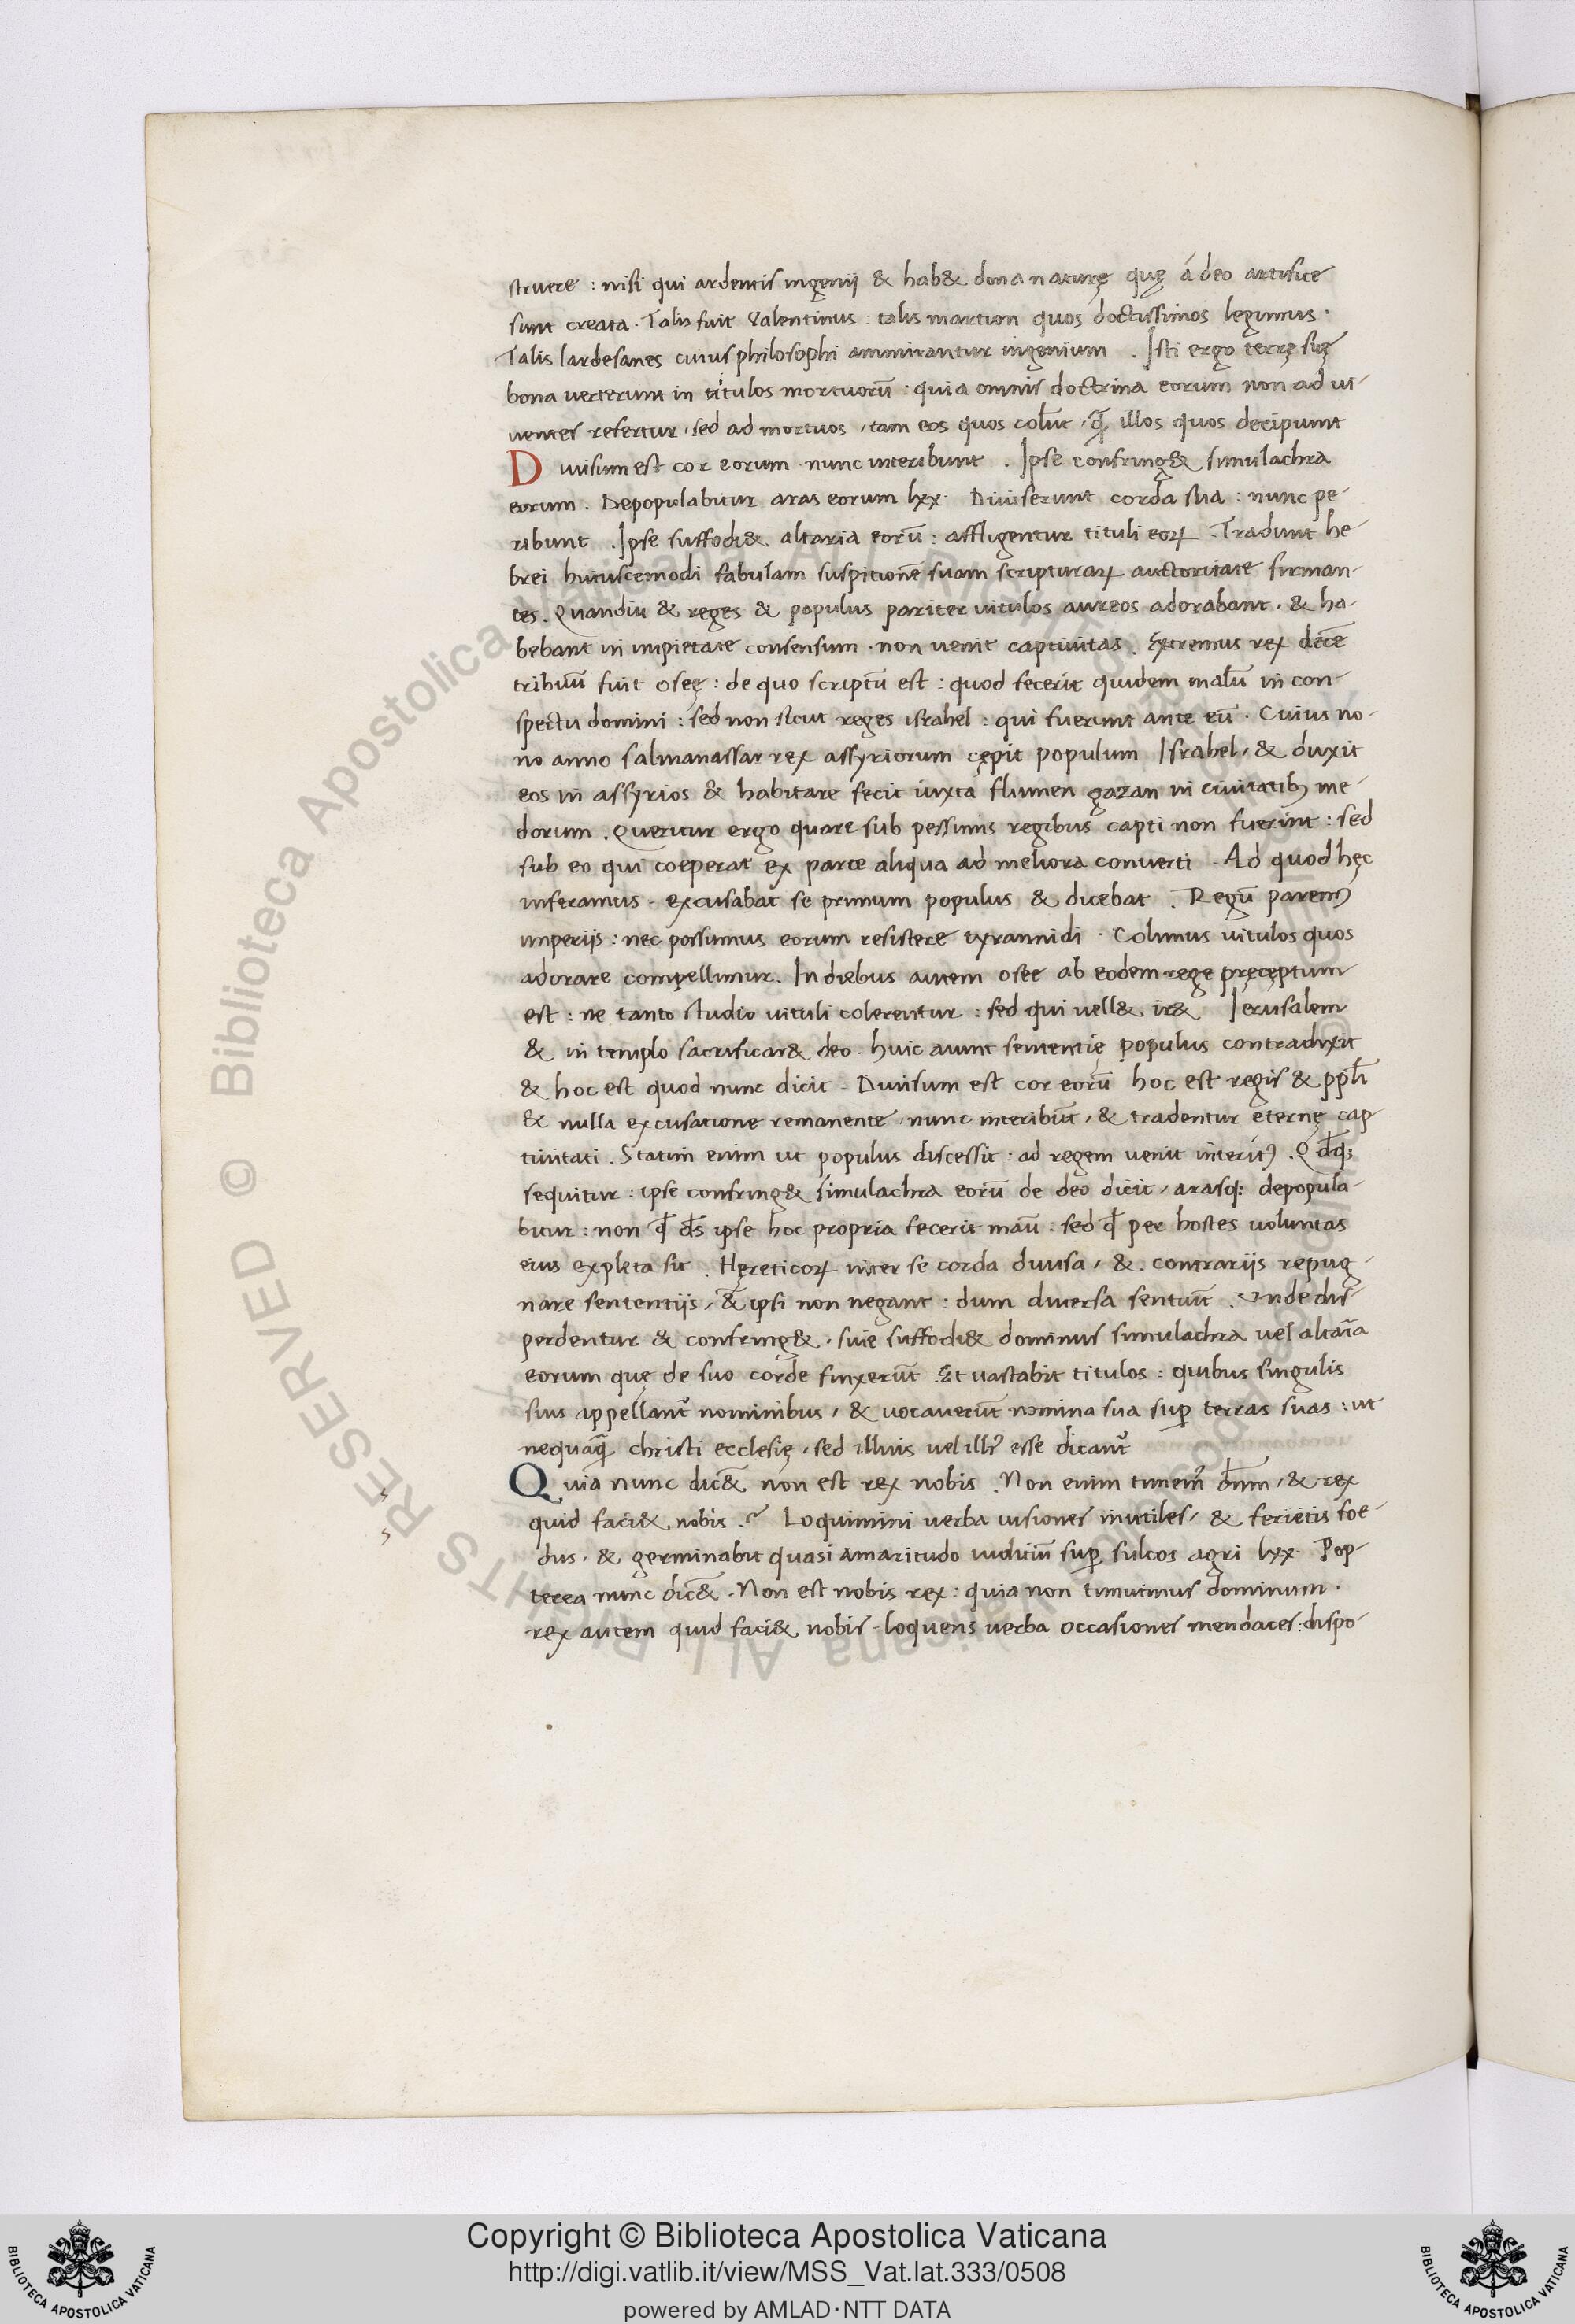 struere : nisi qui ardentis ingenij & hab& dona naturę quę á deo artifice
sunt creata . Talis fuit Valentinus : talis martion quos doctissimos legimus .
Talis lardesanes cuius philosophi ammirantur ingenium . Isti ergo terrę suę
bona verterunt in titulos mortuorū : quia omnis doctrina eorum non ad ui-
uentes refertur , sed ad mortuos , tam eos quos colūt , q̄ illos quos decipiunt
Diuisum est cor eorum . nunc interibunt . Ipse confring& simulachra
eorum . Depopulabitur aras eorum lxx . Diuiserunt corda sua : nunc pe-
ribunt . Ipse suffodi& altaria eorū : affligentur tituli eoꝝ . Tradunt he-
brei huiuscemodi fabulam suspitionē suam scripturaꝝ auctoritate firman-
tes . Quandiu & reges & populus pariter uitulos aureos adorabant , & ha-
bebant in impietate consensum . non uenit captiuitas . Extremus rex decē
tribuū fuit oseę : de quo scriptū est : quod fecerit quidem malū in con-
spectu domini : sed non sicut reges israhel : qui fuerunt ante eū . Cuius no-
no anno salmanassar rex assyriorum cępit populum Israhel , & duxit
eos in assyrios & habitare fecit iuxta flumen gazan in ciuitatibꝫ me-
dorum . Queritur ergo quare sub pessimis regibus capti non fuerint : sed
sub eo qui coeperat ex parte aliqua ad meliora conuerti . Ad quod hęc
inferamus . excusabat se primum populus & dicebat . Regū paremꝰ
imperijs : nec possumus eorum resistere tyrannidi . Colimus uitulos quos
adorare compellimur . In diebus autem osee ab eodem rege pręceptum
est : ne tanto studio uituli colerentur : sed qui uell& ir& Ierusalem
& in templo sacrificar& deo . huic aiunt sententię populus contradixit
& hoc est quod nunc dicit . Diuisum est cor eorū hoc est regis & ppl̄i
& nulla excusatione remanente , nunc interibūt , & tradentur eternę cap
tiuitati . Statim enim ut populus discessit : ad regem uenit interitꝰ . Qd̄q;
sequitur : ipse confring& simulachra eorū de deo dicit , arasq; depopula-
bitur : non qđ d̄s ipse hoc propria fecerit manū : sed qđ per hostes uoluntas
eius expleta sit . Hęreticoꝝ inter se corda diuisa , & contrarijs repug-
nare sententijs , & ipsi non negant : dum diuersa sentiūt . Unde dis
perdentur & confring& , siue suffodi& dominus simulachra uel altaria
eorum quę de suo corde finxerūt . Et uastabit titulos : quibus singulis
suis appellant᷑ nominibus , & uocauerūt nomina sua suꝑ terras suas : ut
nequaq̄ christi ecclesię , sed illius uel illi᷑ esse dicant᷑
Quia nunc dic& non est rex nobis . Non enim timem᷑ dn̄m , & rex
quid faci& nobis .? Loquimini uerba uisiones inutiles , & ferietis foe-
dus , & germinabit quasi amaritudo iudiciū suꝑ sulcos agri lxx . Prop-
terea nunc dic& . Non est nobis rex : quia non timuimus dominum .
rex autem quid faci& nobis . loquens uerba occasiones mendaces : dispo-
Copyright © Biblioteca Apostolica Vaticana
http://digi.vatlib.it/view/MSS_Vat.lat.333/0508
powered by AMLAD·NTT DATA
BIBLIOTECA APOSTOLICA VATICANA
BIBLIOTECA APOSTOLICA VATICANA
© Biblioteca Apostolica Vaticana ALL RIGHTS RESERVED